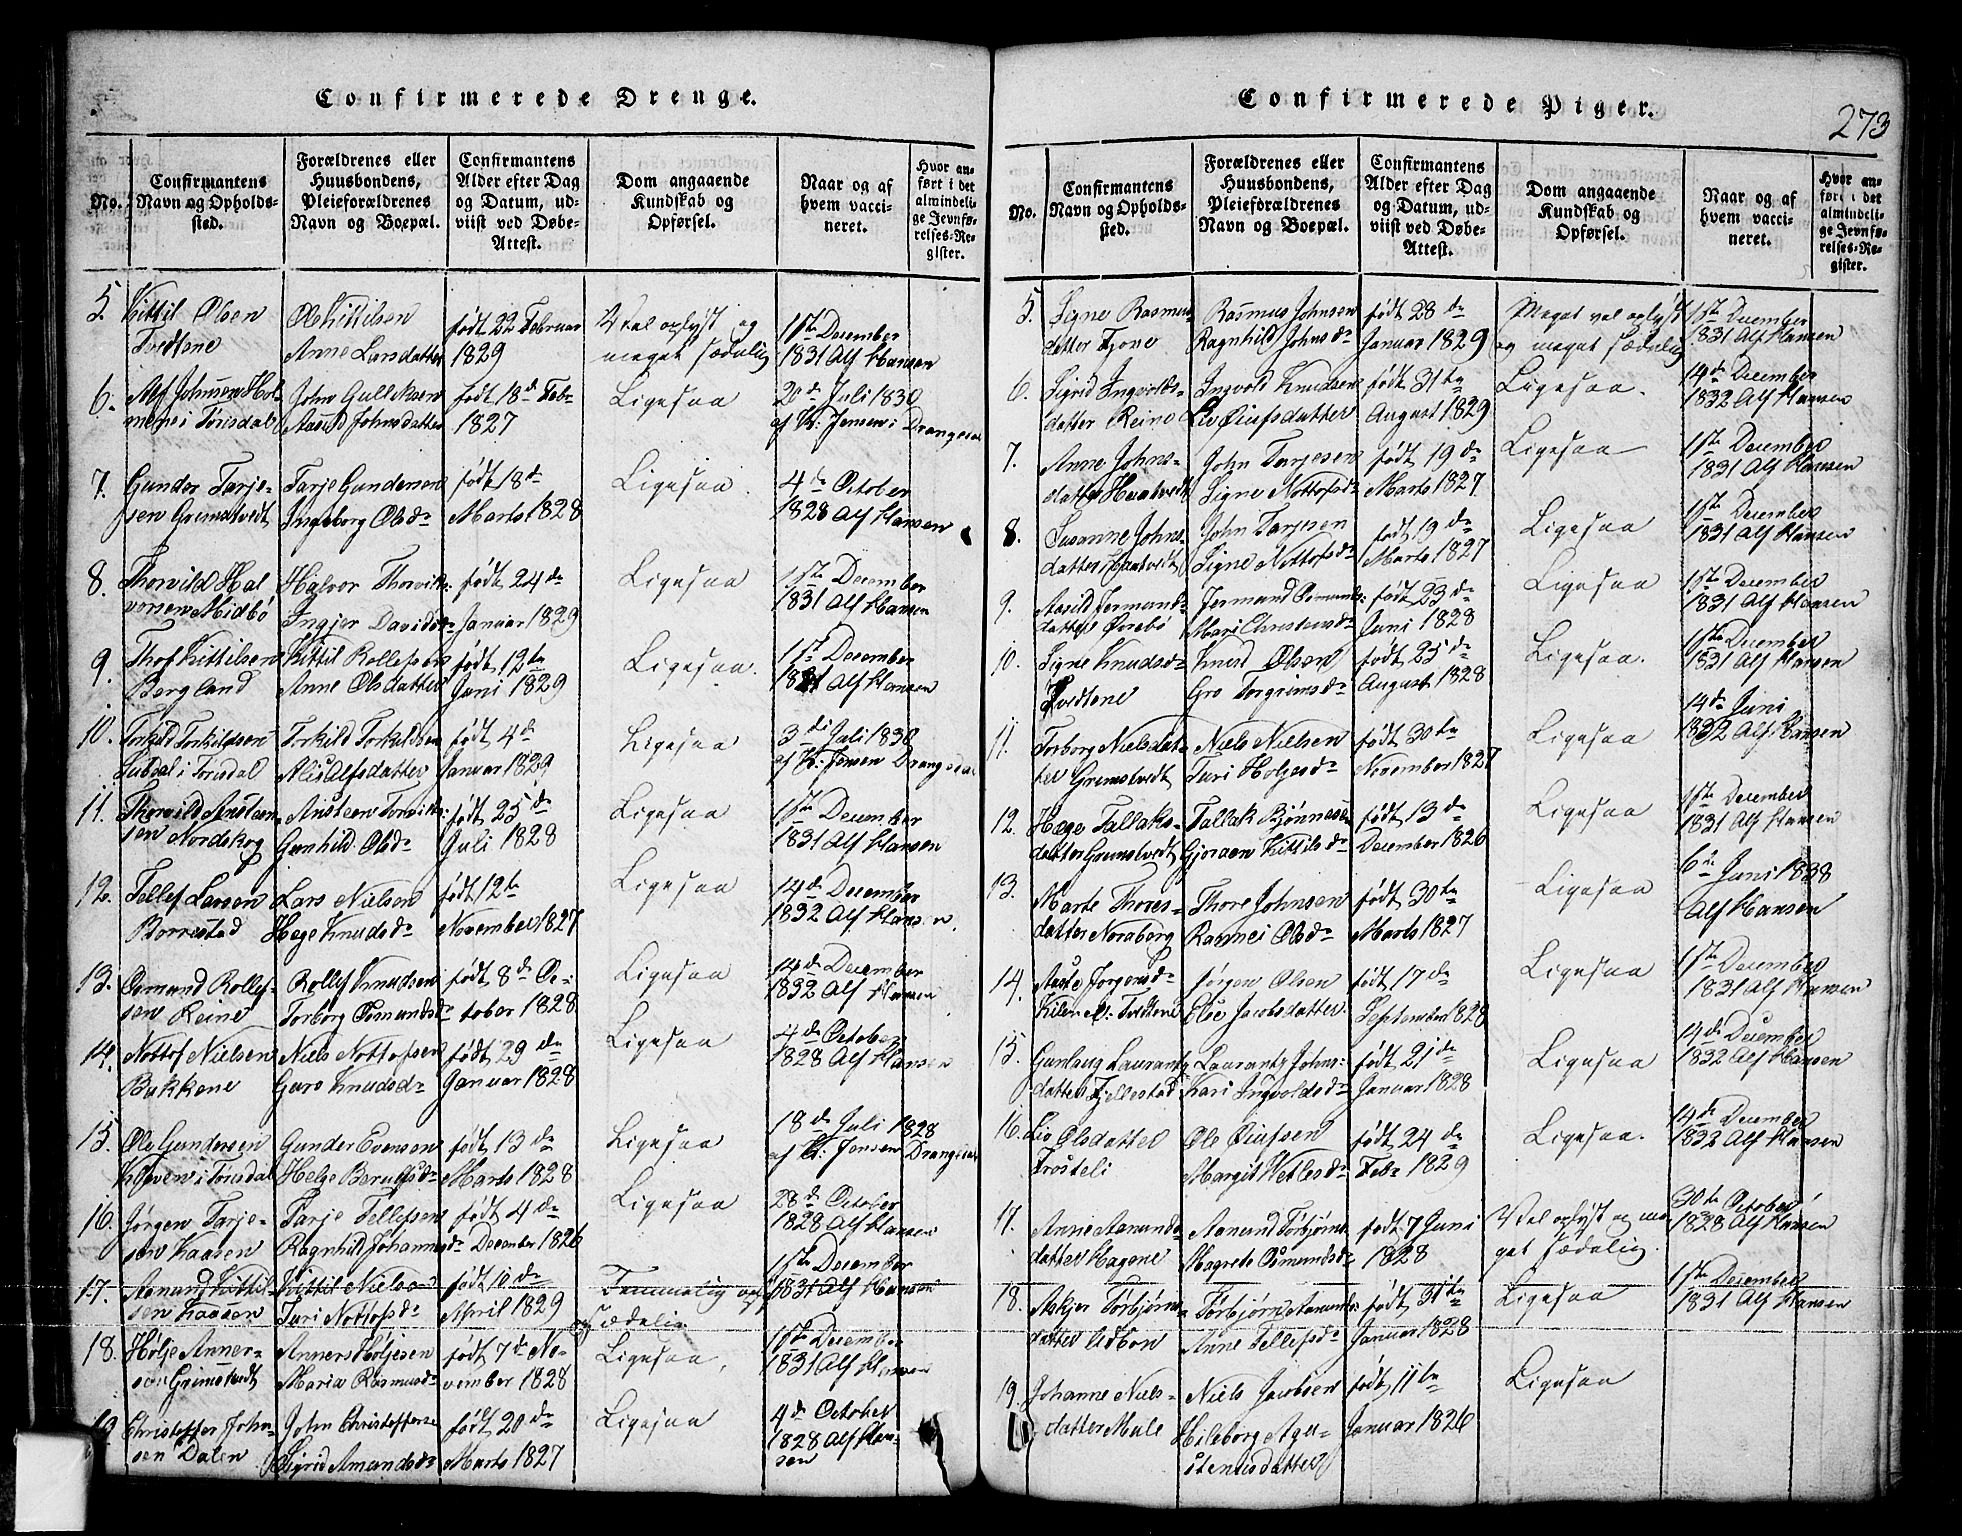 Confirmerede Drenge.
No.
Confirmantens
Navn og Opholds-
sted.
Forældrenes eller
Huusbondens,
Pleieforældrenes
Navn og Boepæl.
Confirmantens
Alder efter Dag
og Datum, ud-
viist ved Døbe-
Attest.
Dom angaaende
Kundskab og
Opførsel.
Naar og af
hvem vacci-
neret.
Hvor an-
ført i det
almindeli-
ge Jevnfø-
relses-Re-
gister.
5. Kittil Olsen
Tvedtene
Ole Kittilsen
Anne Larsdatter
født 22 Februar
1829
Vel oplyst og
meget sædelig
1ste December
1831 Alf Hansen
6. Alf Johnsen Hol-
mene i Tørisdal
John Gulleksen
Aasild Johnsdatter
født 18de Febr
1827
Ligesaa
20de Juli 1830
af K. Jensen i Drangedal
7. Gunder Tarje-
sen Grimstvedt
Tarje Gundersen
Ingeborg Olsdr
født 18de
Marts 1828
Ligesaa.
4de October
1828 Alf Hansen
8. Thorvild Hal
vorsen Midbø
Halvor Thorvils:
Ingjer Davidsdr
født 24de
Januar 1829
Ligesaa
1ste December
1831 Alf Hansen
9. Thof Kittilsen
Bergland
Kittil Rollefsen
Anne Olsdatter
født 12te
Juni 1829
Ligesaa.
1ste December
1831 Alf Hansen
10. Torkild Torkildsen
Lubdal i Torisdal
Torkild Torkildsen
Alis Alfsdatter
født 4de
Januar 1829
Ligesaa
3de Juli 1830
af K. Jensen Drangedal
11. Thorvild Ansteen-
sen Nordskog
Ansteen Torvils:
Gunhild Olsdr
født 25de
Juli 1828
Ligesaa
1ste December
1831 Alf Hansen
12. Tellef Larsen
Borrestad
Lars Nielsen
Hege Knudsdr
født 12te
November 1827
Ligesaa
14de December
1832 Alf Hansen.
13. Osmund Rollef-
sen Reine
Rollef Knudsen
Torborg Osmundsdr
født 8de Oc-
tober 1828
Ligesaa
14de December
1832 Alf Hansen
14. Nottof Nielsen
Bakkene
Niels Nottofsen
Guro Knudsdr
født 29de
Januar 1828
Ligesaa
4de October
1828 Alf Hansen
15. Ole Gundersen
Kleven i Torisdal
Gunder Evensen
Helge Berulfsdr
født 13de
Marts 1828
Ligesaa
18de Juli 1828
af K. Jensen Drangedal
16. Jørgen Tarje-
sen Kaasen
Tarje Tellefsen
Ragnhild Johannesdr
født 4de
December 1826
Ligesaa
28de October
1828 Alf Hansen
17. Aanund Kittil-
sen Kaasen
Kittil Nielsen
Turi Nottofsdr
født 10de
April 1829
Temmelig opl
og sædelig
1ste December
1831 Alf Hansen
18. Hølje Anner-
sen Grimstvedt
Anners Høljesen
Maria Rasmusdr
født 7de No-
vember 1828
Ligesaa,
1ste December
1831 Alf Hansen
19. Christoffer John-
sen Dalen
John Christoffersen
Sigrid Amundsdr
født 20de
Marts 1827
Ligesaa
4de October
1828 Alf Han-
sen
Confirmerede Piger.
273
No.
Confirmantens
Navn og Opholds-
sted.
Forældrenes eller
Huusbondens,
Pleieforældrenes
Navn og Boepæl.
Confirmantens
Alder efter Dag
og Datum, ud-
viist ved Døbe-
Attest.
Dom angaaende
Kundskab og
Opførsel.
Naar og af
hvem vacci-
neret.
Hvor an-
ført i det
almindeli-
ge Jevnfø-
relses-Re-
gister.
5. Signe Rasmus-
datter Fjone
Rasmus Johnsen
Ragnhild Johnsdr
født 28de
Januar 1829
Meget vel oplyst
og meget sædelig
1ste December
1831 Alf Hansen
6. Sigrid Ingvolds-
datter Reine
Ingvold Knudsen
Liv Øiufsdatter
født 31te
August 1829
Ligesaa.
14de December
1832 Alf Hansen
7. Anne Johns-
datter Haatvedt
John Tarjesen
Signe Nottofsdr
født 19de
Marts 1827
Ligesaa
1ste December
1831 Alf Hansen
8. Susanne Johns-
datter Haatvedt
John Tarjesen
Signe Nottofsdr
født 19de
Marts 1827
Ligesaa
1ste December
1831 Alf Hansen
9. Aasild Jermunds-
datter Ørebø
Jermund Osmunds:
Mari Christensdr
født 23de
Juni 1828
Ligesaa
1ste December
1831 Alf Hansen
10. Signe Knudsdr
Tvedtene
Knud Olsen
Gro Torgrimsdr
født 25de
August 1828
Ligesaa.
1ste December
1831 Alf Hansen
11. Torborg Nielsdat-
ter Grimstvedt
Niels Nielsen
Turi Holjesdr
født 30te
November 1827
Ligesaa
14de Juni
1832 Alf Hansen
12. Hæge Tallaks-
datter Grimstvedt
Tallak Bjønnesen
Gjoraen Kittilsdr
født 13de
December 1826
Ligesaa
1ste December
1831 Alf Hansen
13. Marte Thores-
datter Noraberg
Thore Johnsen
Rannei Olsdr
født 30te
Marts 1827
Ligesaa
6te Juni 1838
Alf Hansen
14. Aaste Jørgensdr
Kilen Tvedtene
Jørgen Olsen
Else Jacobsdatter
født 17de
September 1828
Ligesaa
1ste December
1831 Alf Hansen
15. Gunlaug Laurantz
datter Fjellestad
Laurantz Johns:
Kari Ingvoldsdr
født 21de
Januar 1828
Ligesaa
14de December
1832 Alf Hansen
16. Liv Olsdatter
Trosteli
Ole Øiufsen
Margit Vetlesdr
født 24de
Febr 1829
Ligesaa.
14de December
1832 Alf Hansen
17. Anne Aanunds-
datter Hagene
Aanund Tørbjørns:
Magrete Osmundsdr
født 7 Juni
1828
Vel oplyst og me-
get sædelig.
30te October
1828 Alf Hansen
18. Askjer Tørbjørns-
datter Udbøen
Tørbjørn Aanunds:
Anne Tellefsdr
født 31te
Januar 1828
Ligesaa
1ste December
1831 Alf Hansen
19. Johanne Niels-
datter Mule
Niels Jacobsen
Hileborg Agu-
stenusdatter
født 11te
Januar 1826
Ligesaa